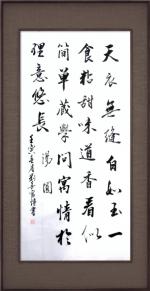 天衣無縫白如玉一
食粘甜味道香看似
簡單藏學問寓情於
理意悠長
湯圓
壬寅年春